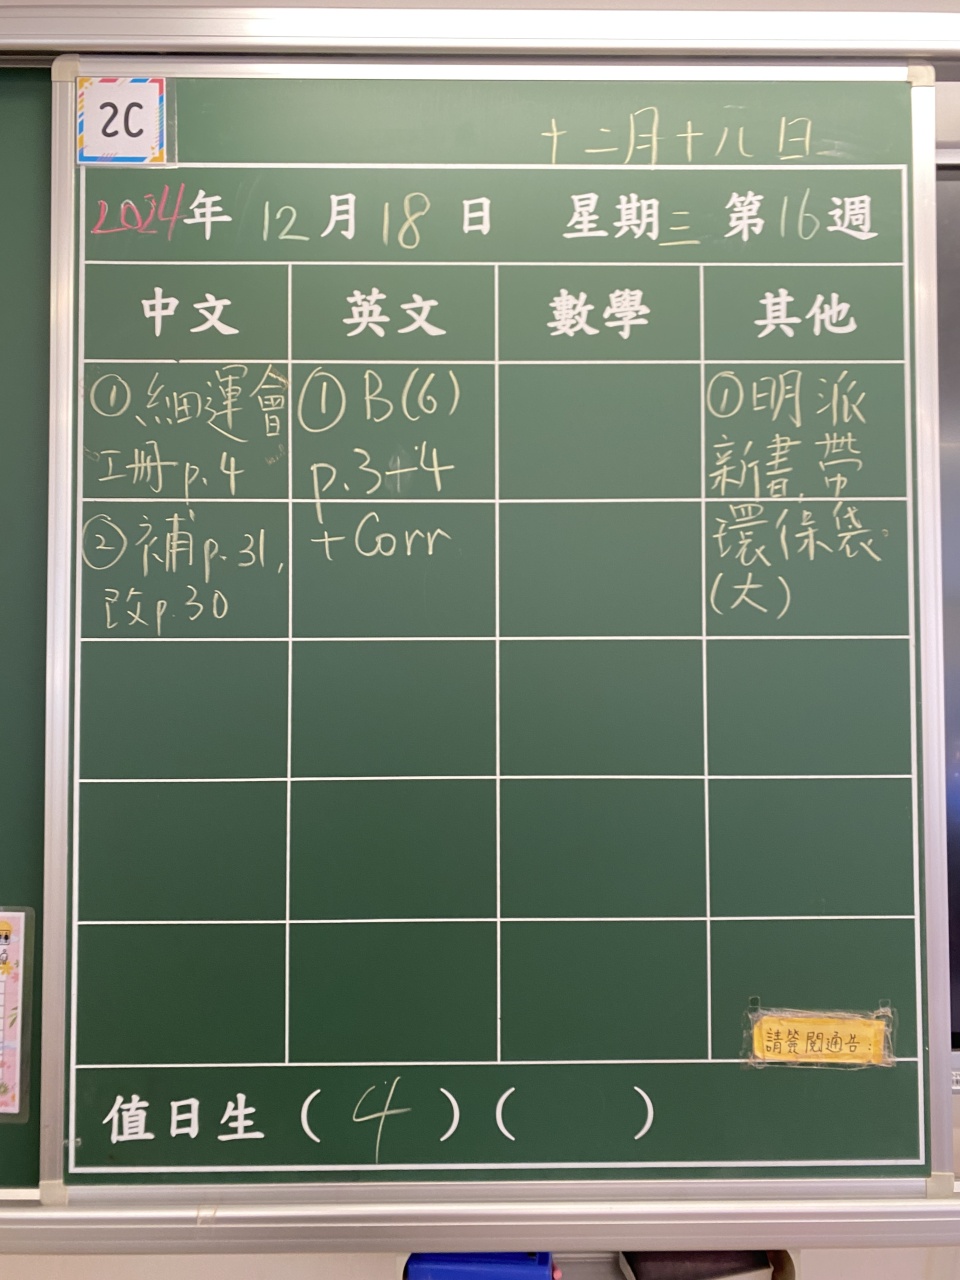 2C
十二月十八日
2024年12月18日 星期三 第16週
中文 英文 數學 其他
①細運會
工冊p.4
②補p.31,
改p.30
①B(6)
p.3+4
+Corr
①明派
新書,帶
環保袋
(大)
請簽閱通告:
值日生(4)( )